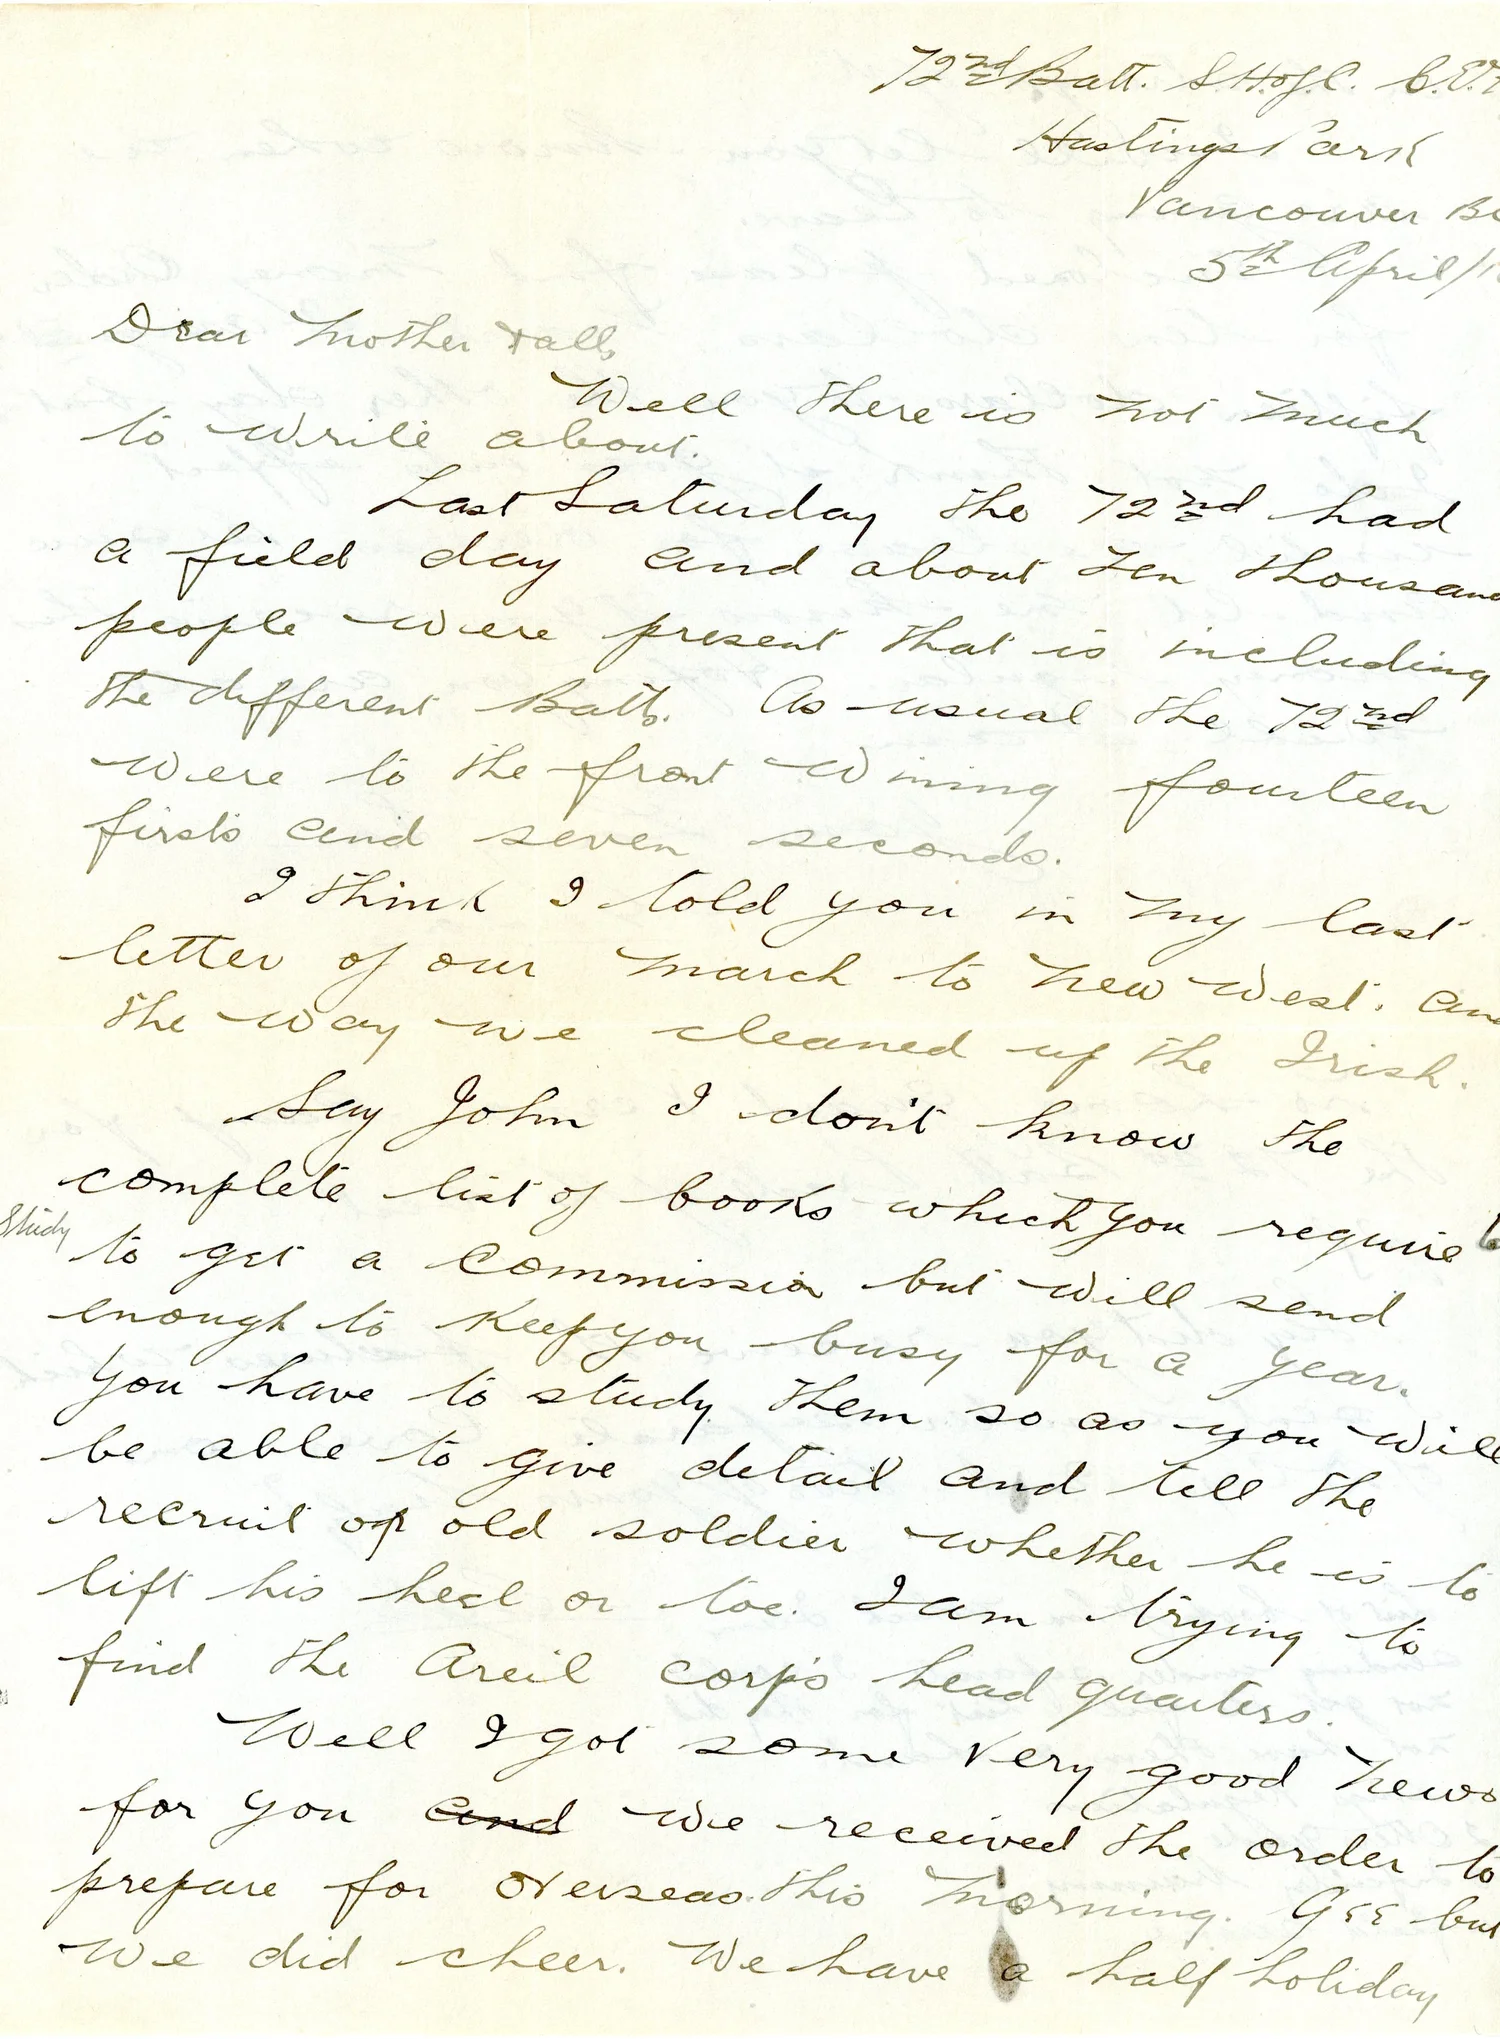 72nd Batt. S.H.of.C. C.E.F
Hastings Park
Vancouver BC
5th April/1
Dear Mother & all,
Well there is not much
to write about.
Last Saturday the 72nd had
a field day and about ten thousand
people were present that is including
the different Batts. As usual the 72nd
were to the front wining fourteen
firsts and seven seconds.
I think I told you in my last
letter of our march to New West. and
the way we cleaned up the Irish.
Say John I don't know the
complete list of books which you require to
study
to get a commission but will send
enough to keep you busy for a year.
You have to study them so as you will
be able to give detail and tell the
recruit or old soldier whether he is to
lift his heel or toe. I am trying to
find the Areil corps head quarters.
Well I got some very good news
for you and we received the order to
prepare for overseas this morning. Gee but
we did cheer. We have a half holiday